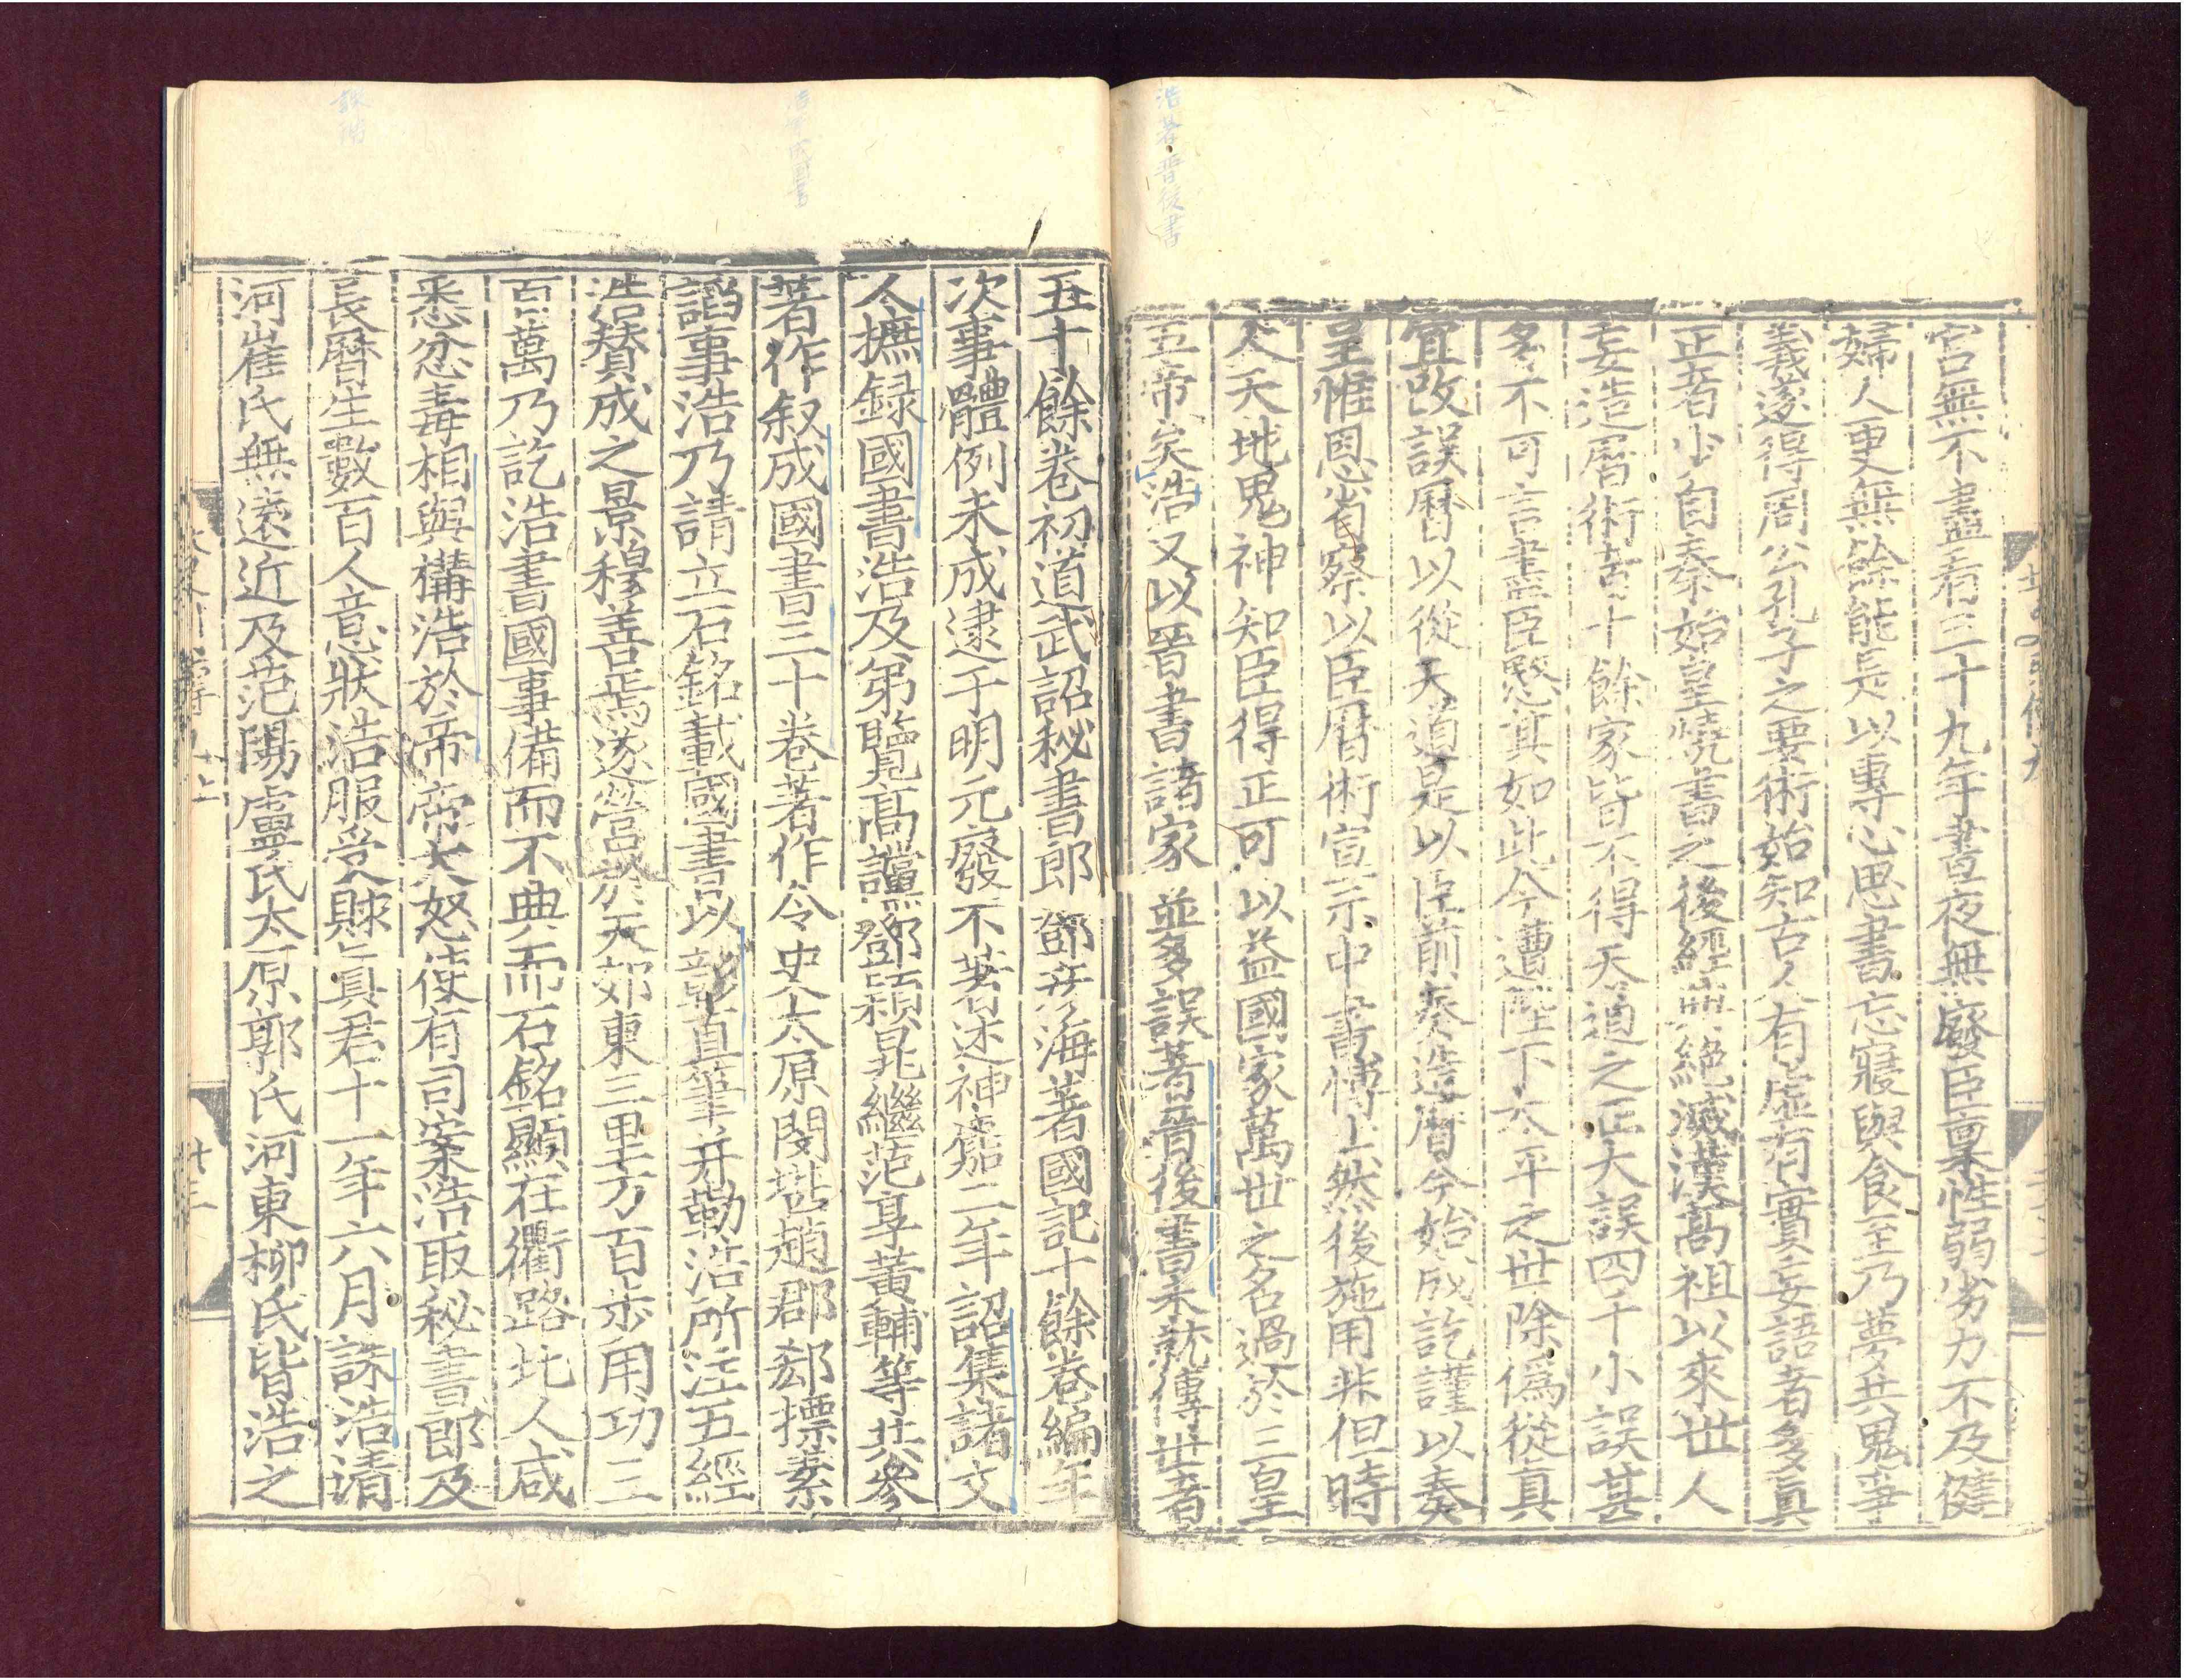 浩著晉後書
宫無不盡看三十九年晝夜無廢臣稟性弱劣力不及健
婦人更無餘能是以專心思書忘寢與食至乃夢共鬼爭
義遂得周公孔子之要術始知古人有虛有實妄語者多真
正者少自秦始皇燒書之後經典絶滅漢髙祖以來世人
妄造曆術者十餘家皆不得天道之正大誤四千小誤甚
多不可言盡臣愍其如此今遭陛下太平之世除偽從真
宜改誤曆以從天道是以臣前奏造曆今始成訖謹以奏
呈惟恩省察以臣曆術宣示中書博士然後施用非但時
人天地鬼神知臣得正可以益國家萬世之名過於三皇
五帝矣浩又以晉書諸家並多誤著晉後書未就傳世者
五十餘卷初道武詔秘書郎鄧彦海著國記十餘卷編年
次事體例未成逮于明元廢不著述神䴥二年詔集諸文
人摭録國書浩及弟覽髙讜鄧穎晁繼范享黄輔等共參
著作叙成國書三十卷著作令史太原閔堪趙郡郄摽素
謟事浩乃請立石銘載國書以彰直筆并勒浩所注五經
浩賛成之景穆善焉遂營於天郊東三里方百步用功三
百萬乃訖浩書國事備而不典而石銘顯在衢路北人咸
悉忿毒相與構浩於帝帝大怒使有司案浩取秘書郎及
長曆生數百人意狀浩服受賕真君十一年六月誅浩清
河崔氏無遠近及范陽盧氏太原郭氏河東柳氏皆浩之